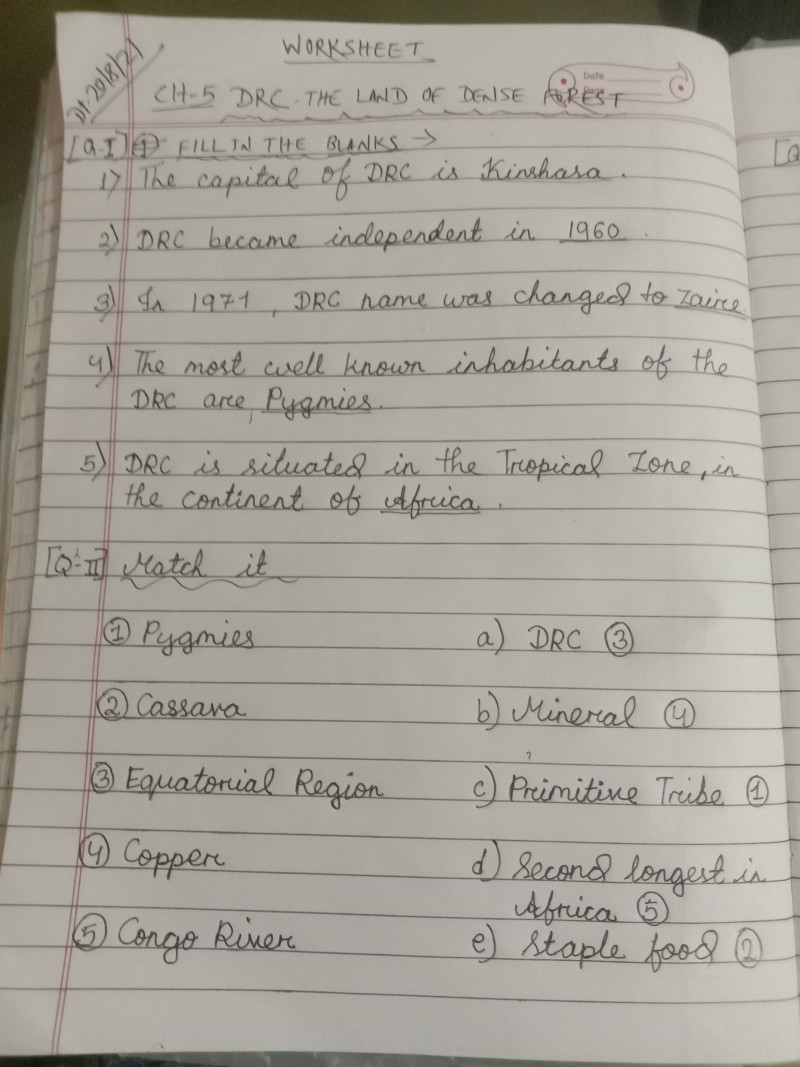 Dt-20/8/21
WORKSHEET
Date
Page
CH-5 DRC-THE LAND OF DENSE FOREST
[Q-I] ① FILL IN THE BLANKS →
1) The capital of DRC is Kinshasa.
2) DRC became independent in 1960.
3) In 1971, DRC name was changed to Zaire.
4) The most well known inhabitants of the
DRC are, Pygmies.
5) DRC is situated in the Tropical Zone, in
the continent of Africa.
[Q-II] Match it
① Pygmies a) DRC ③
② Cassava b) Mineral ④
③ Equatorial Region c) Primitive Tribe ①
④ Copper d) Second longest in
Africa ⑤
⑤ Congo River e) Staple food ②
[Q